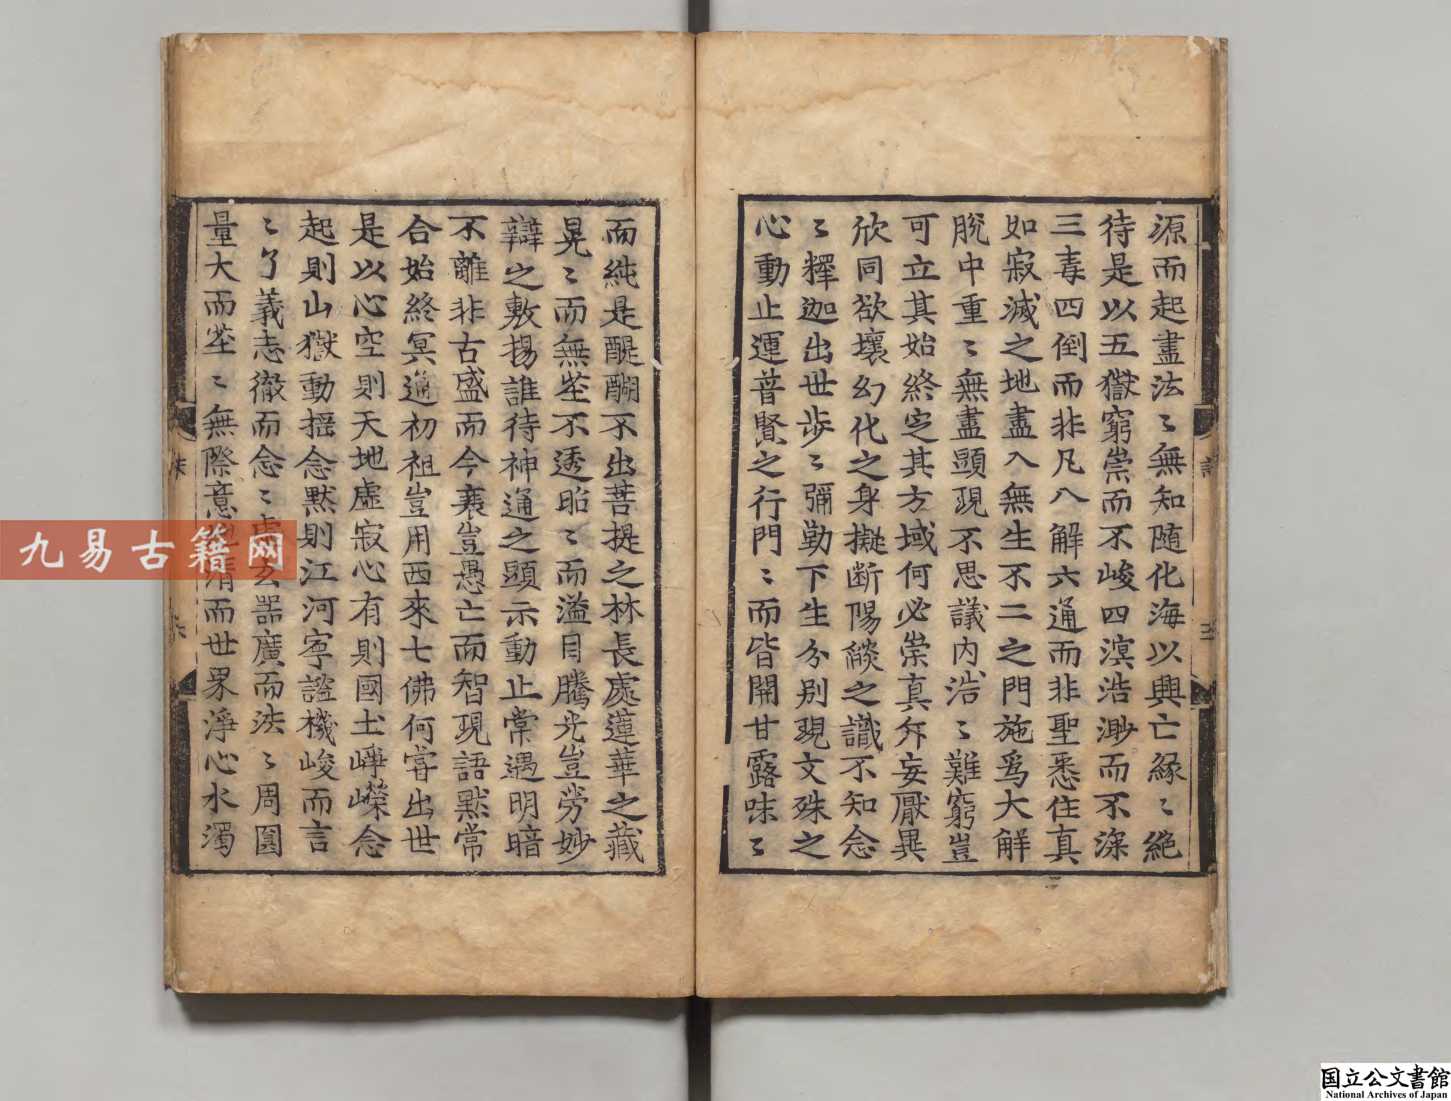 源而起盡法〻無知随化海以興亡緣〻絶
待是以五獄窮崇而不峻四溟浩渺而不深
三毒四倒而非凡八解六通而非聖悉住真
如寂滅之地盡入無生不二之門施爲大解
脫中重〻無盡顕現不思議内浩〻難窮豈
可立其始終定其方域何必崇真斥妄厭異
欣同欲壞幻化之身擬断陽燄之識不知念
〻釋迦出世步〻彌勒下生分别現文殊之
心動止運普賢之行門〻而皆開甘露味〻
而純是醍醐不出菩提之林長處蓮華之藏
晃〻而無塵不透昭〻而溢目騰光豈勞妙
辯之敷揚誰待神通之顕示動止常遇明暗
不離非古盛而今衰豈愚亡而智現語黙常
合始終冥通初祖豈用西來七佛何甞出世
是以心空則天地虛寂心有則國土崢嶸念
起則山獄動揺念黙則江河寧謐機峻而言
〻了義志徹而念〻虛玄器廣而法〻周圓
量大而塵〻無際意清而世界淨心水濁
九易古籍网
国立公文書館
National Archives of Japan